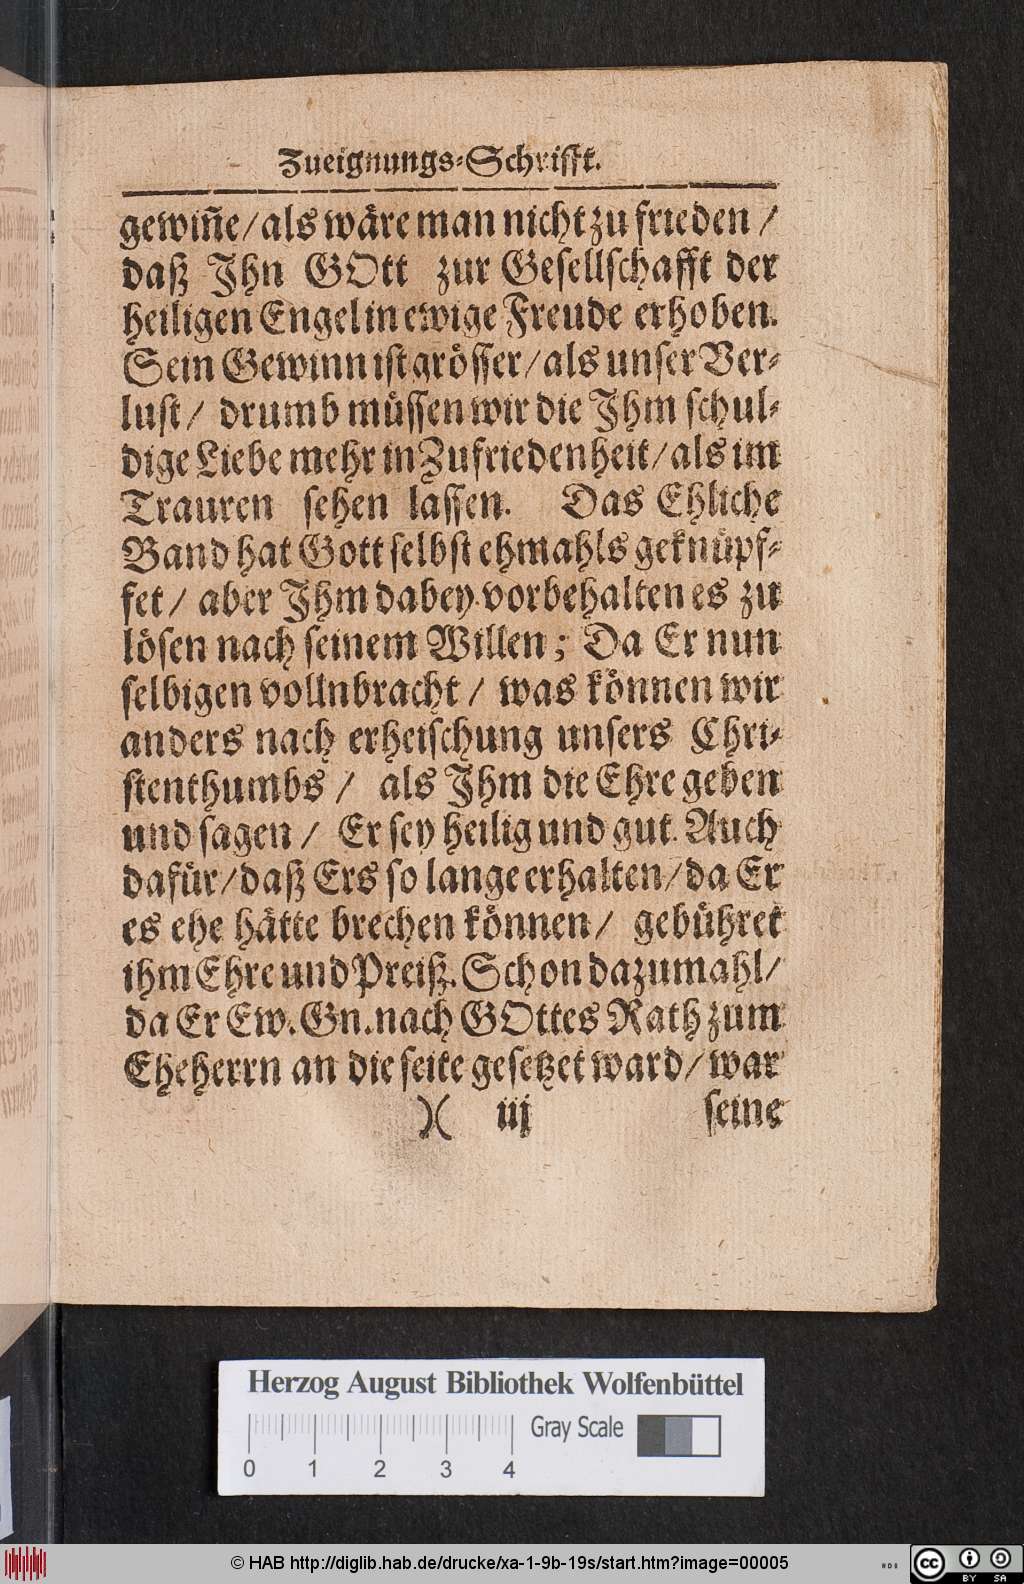 Zueignungs-Schrifft.
gewiñe/als wäre man nicht zu frieden/
daß Ihn GOtt zur Gesellschafft der
heiligen Engel in ewige Freude erhoben.
Sein Gewinn ist grösser/als unser Ver-
lust/ drumb müssen wir die Ihm schul-
dige Liebe mehr in Zufriedenheit/als im
Trauren sehen lassen. Das Ehliche
Band hat Gott selbst ehmahls geknüpf-
fet/ aber Ihm dabey vorbehalten es zu
lösen nach seinem Willen; Da Er nun
selbigen vollnbracht/ was können wir
anders nach erheischung unsers Chri-
stenthumbs/ als Ihm die Ehre geben
und sagen/ Er sey heilig und gut. Auch
dafür/daß Ers so lange erhalten/da Er
es ehe hätte brechen können/ gebühret
ihm Ehre und Preiß. Schon dazumahl/
da Er Ew. Gn. nach GOttes Rath zum
Eheherrn an die seite gesetzet ward/war
)( iij seine
Herzog August Bibliothek Wolfenbüttel
Gray Scale
0 1 2 3 4
© HAB http://diglib.hab.de/drucke/xa-1-9b-19s/start.htm?image=00005
cc BY SA